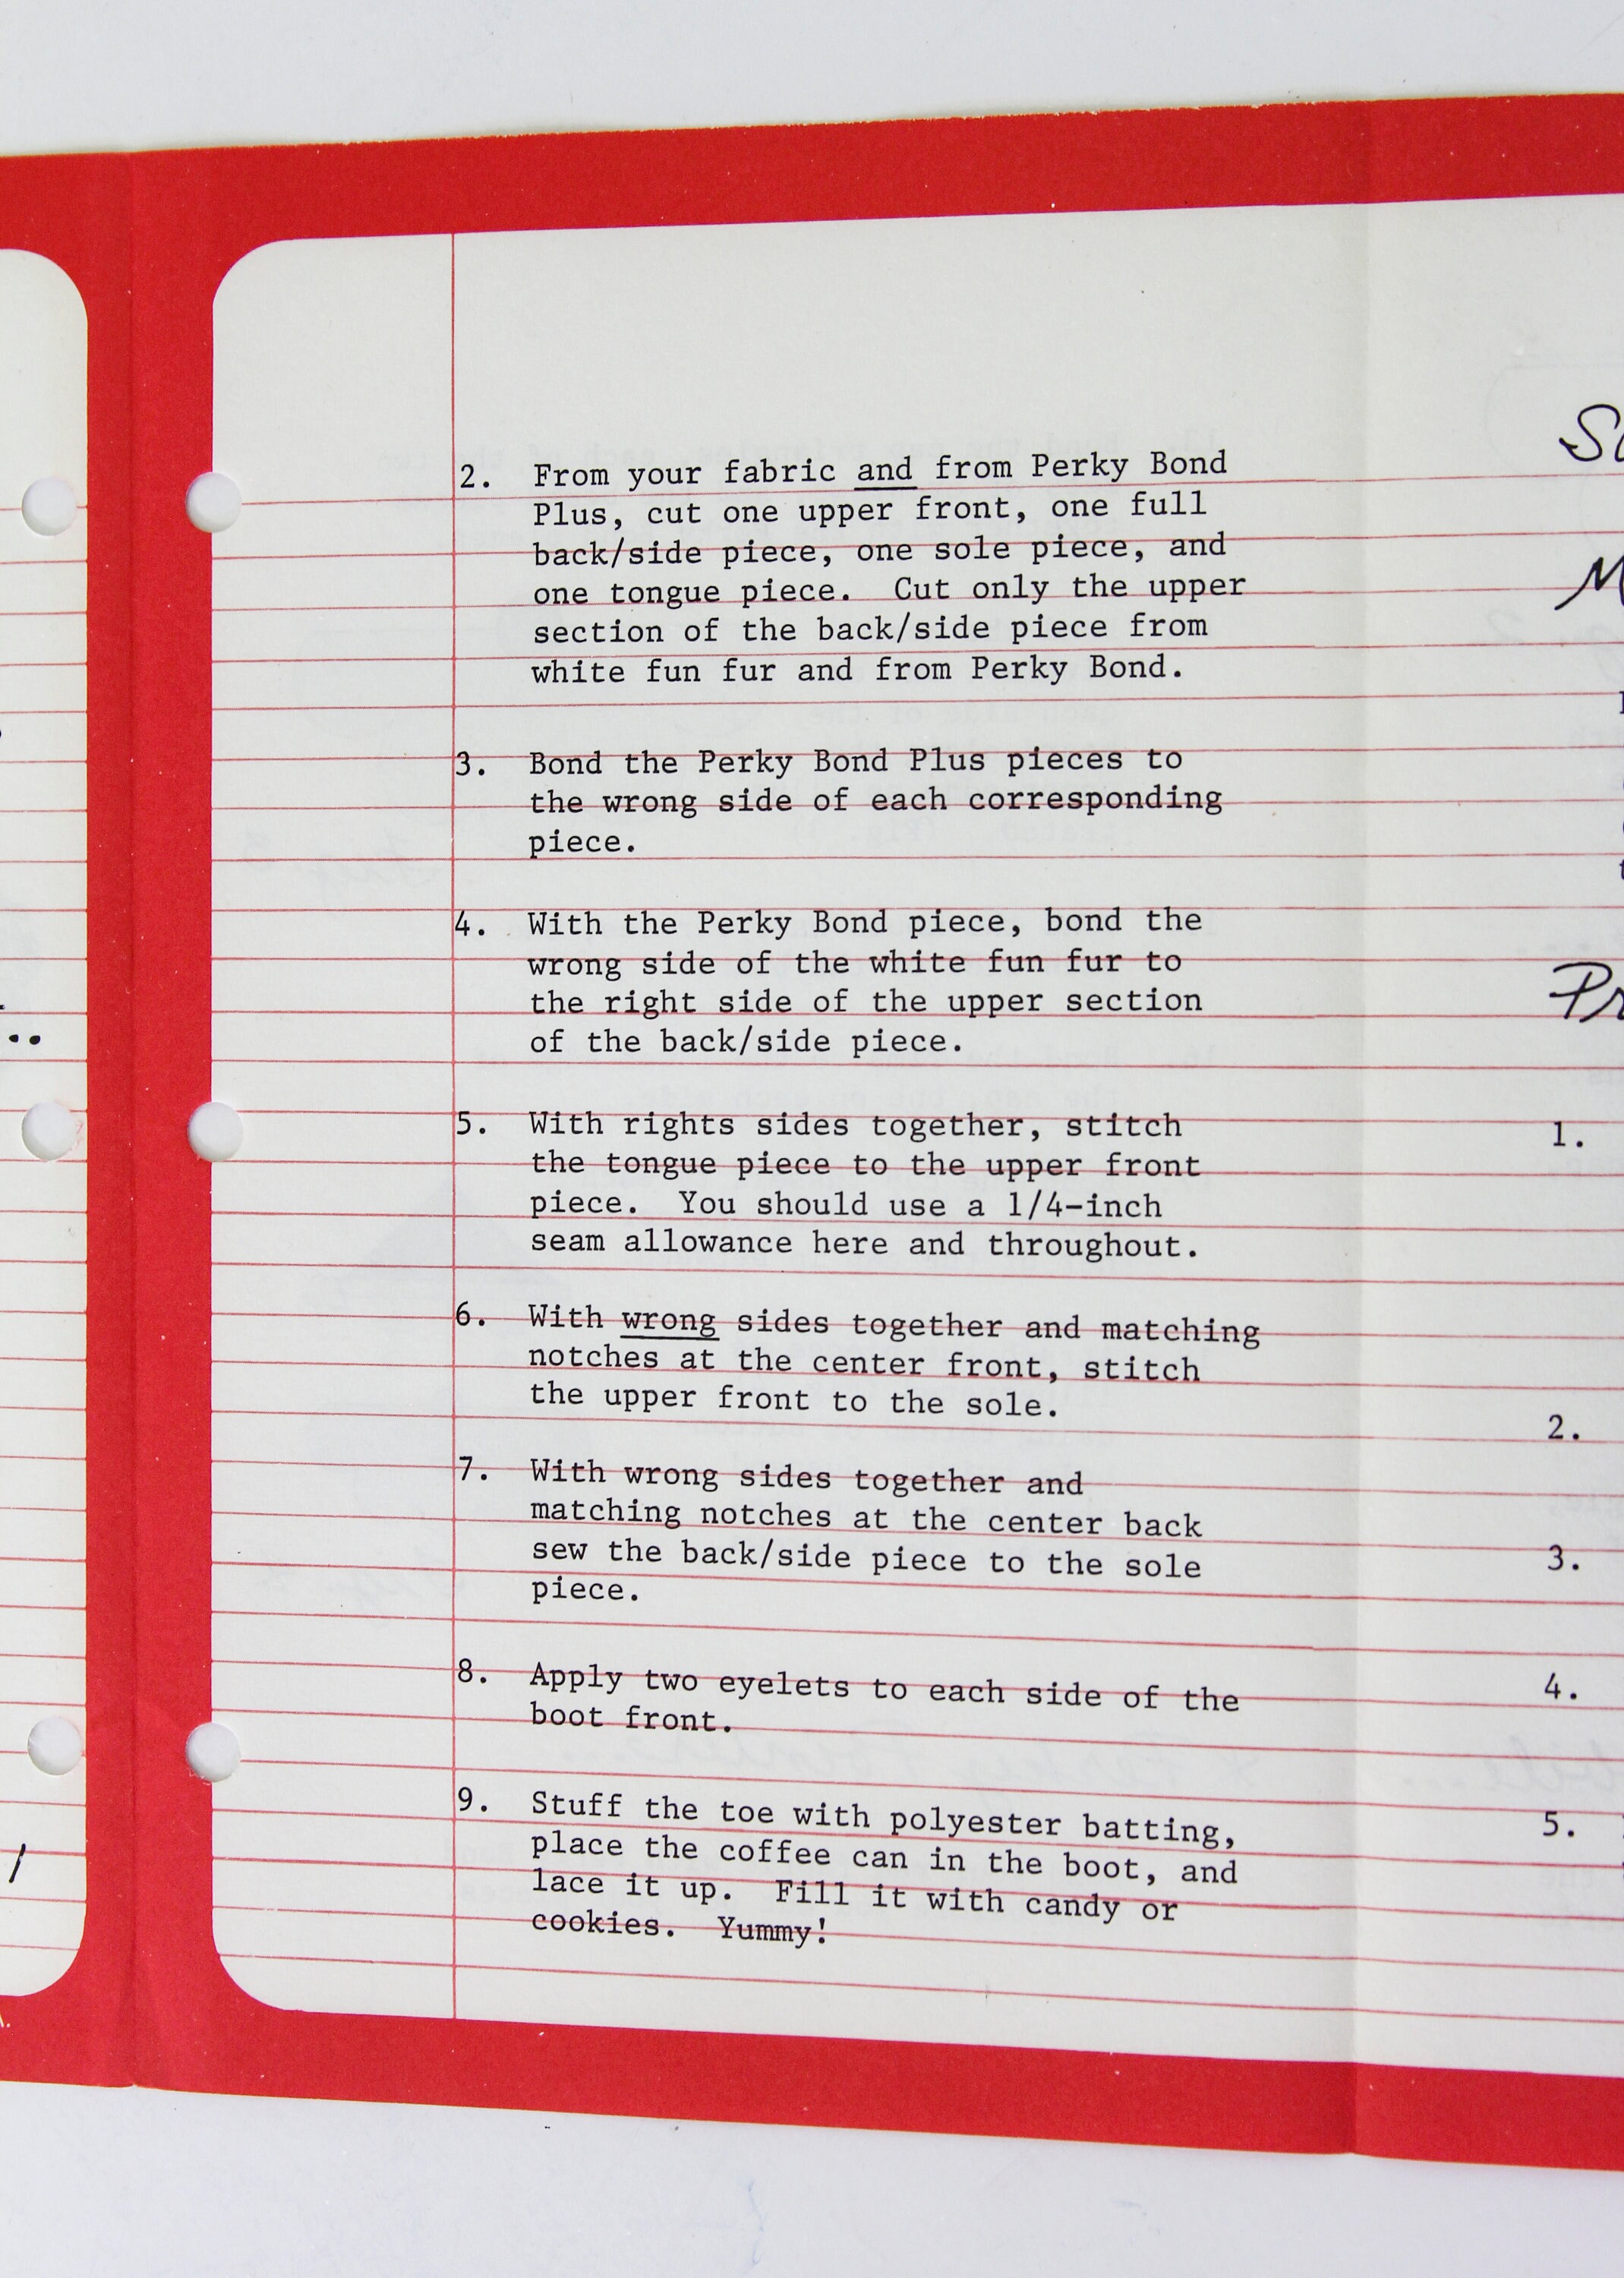 2. From your fabric and from Perky Bond
Plus, cut one upper front, one full
back/side piece, one sole piece, and
one tongue piece. Cut only the upper
section of the back/side piece from
white fun fur and from Perky Bond.
3. Bond the Perky Bond Plus pieces to
the wrong side of each corresponding
piece.
4. With the Perky Bond piece, bond the
wrong side of the white fun fur to
the right side of the upper section
of the back/side piece.
5. With rights sides together, stitch
the tongue piece to the upper front
piece. You should use a 1/4-inch
seam allowance here and throughout.
6. With wrong sides together and matching
notches at the center front, stitch
the upper front to the sole.
7. With wrong sides together and
matching notches at the center back
sew the back/side piece to the sole
piece.
8. Apply two eyelets to each side of the
boot front.
9. Stuff the toe with polyester batting,
place the coffee can in the boot, and
lace it up. Fill it with candy or
cookies. Yummy!
1.
2.
3.
4.
5.